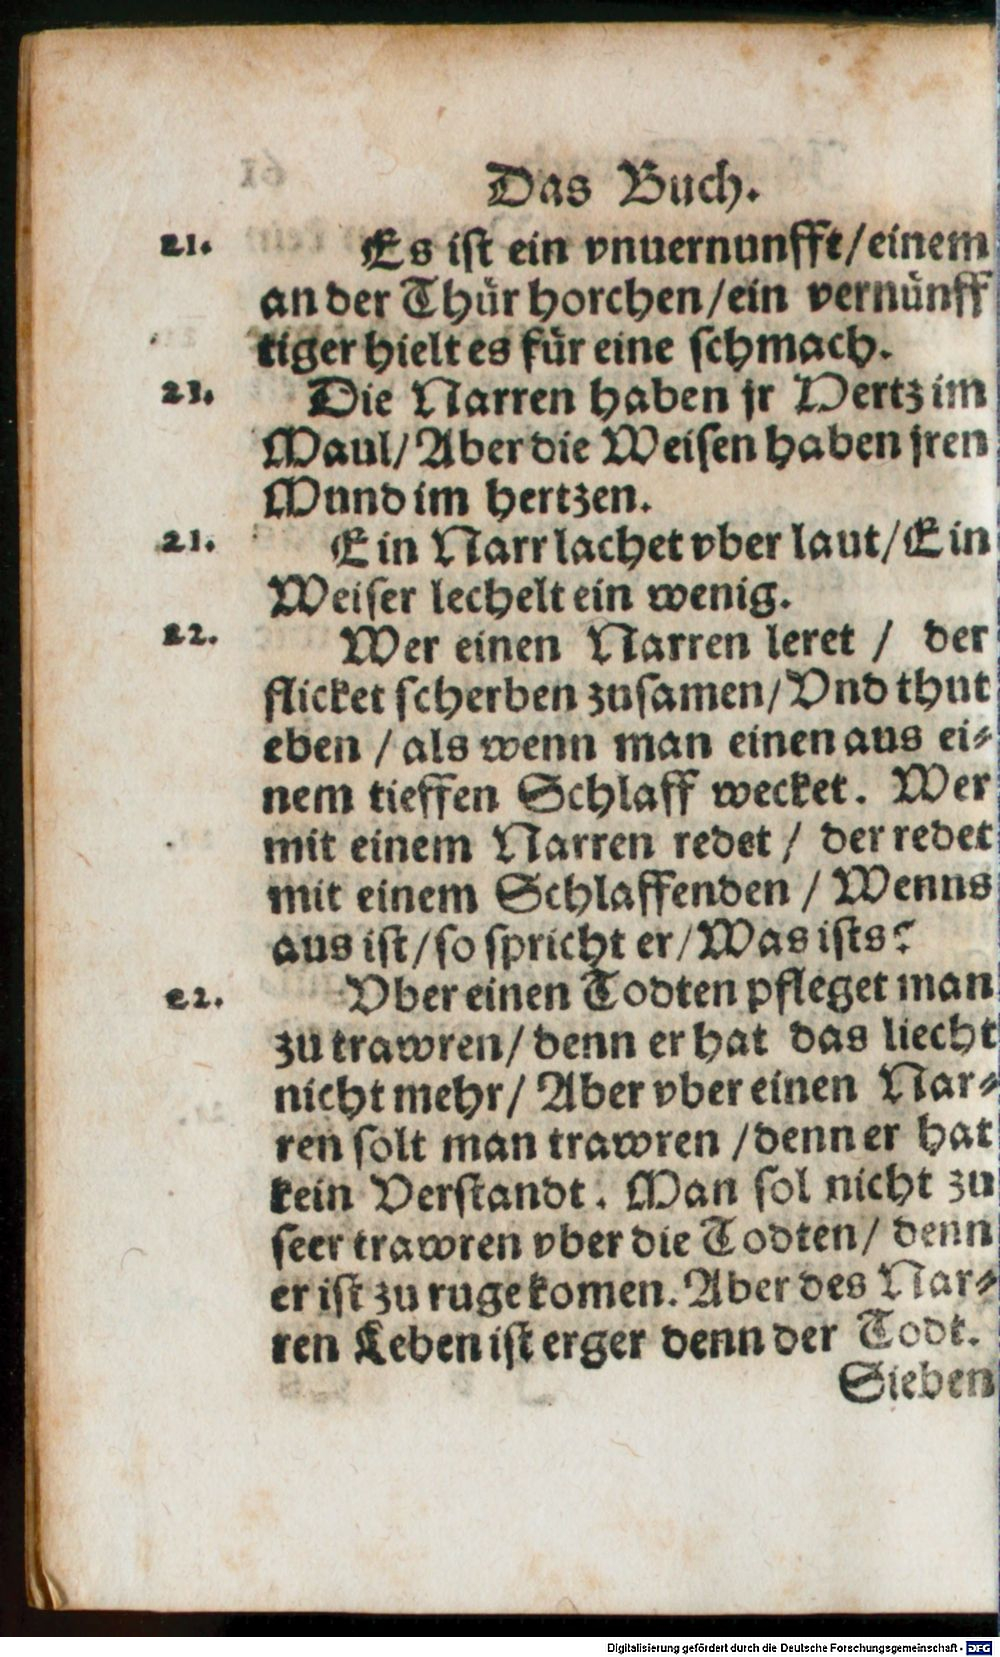 Das Buch.
21. Es ist ein vnuernunfft/einem
an der Thür horchen/ein vernünff
tiger hielt es für eine schmach.
21. Die Narren haben jr Hertz im
Maul/Aber die Weisen haben jren
Mund im hertzen.
21. Ein Narr lachet vber laut/Ein
Weiser lechelt ein wenig.
22. Wer einen Narren leret / der
flicket scherben zusamen/Vnd thut
eben / als wenn man einen aus ei-
nem tieffen Schlaff wecket. Wer
mit einem Narren redet / der redet
mit einem Schlaffenden / Wenns
aus ist/so spricht er/Was ists?
22. Vber einen Todten pfleget man
zu trawren/denn er hat das liecht
nicht mehr/ Aber vber einen Nar-
ren solt man trawren /denn er hat
kein Verstandt. Man sol nicht zu
seer trawren vber die Todten/ denn
er ist zu ruge komen. Aber des Nar-
ren Leben ist erger denn der Todt.
Sieben
Digitalisierung gefördert durch die Deutsche Forschungsgemeinschaft - DFG